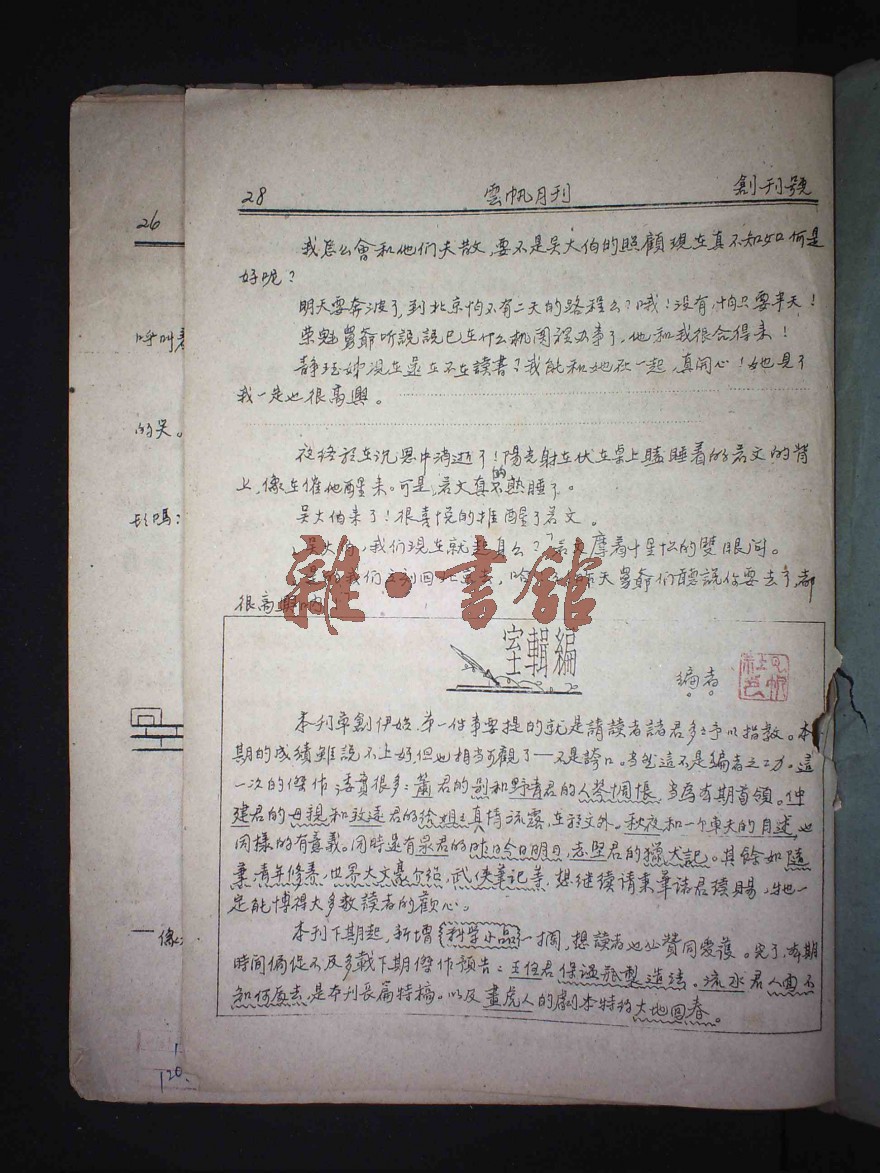 28 雲帆月刊 創刊號
我怎么會和他们失散,要不是吴大伯的照顧現在真不知如何是
好呢?
明天要奔波了,到北京怕不有二天的路程么?哦!没有,怕只要半天!
荣魁舅爺听説説已在什么机関裡办事了,他和我很合得来!
静珏妳現在還在不在讀書?我能和她在一起,真開心!她見了
我一定也很高興。
夜终於在沉思中消逝了!陽光射在伏在桌上瞌睡着的君文的背
上,像在催他醒来。可是,君文真的熟睡了。
吴大伯来了!很喜悦的推醒了君文。
我们現在就起身么?君文摩着惺忪的雙眼问。
我们立刻回北京去,舅爺们聽説你要去了,都
很高興呐
編輯室
編者
本刊草創伊始,第一件事要提的就是請讀者諸君多多予以指教。本
期的成績雖説不上好,但也相当可觀了——不是誇口。当然這不是编者之功。這
一次的傑作委實很多:蕭君的别和野青君的人祭惆悵,当為本期首領。仲
建君的母親和致遠君的给姐姐真情流露,在於文外。秋夜和一个車夫的自述,也
同樣的有意義。同時還有泉君的昨日今日明日,志坚君的獵犬記。其餘如随
筆,青年修养,世界大文豪介绍,武侠筆記等,想继续请秉筆诸君續賜,她一
定能博得大多数讀者的歡心。
本刊下期起,新增科学小品一欄,想讀者也必贊同愛護。完了,本期
時间倆促不及多載下期傑作預告:王恒君保溫瓶製造法。流水君人面不
知何處去,是本刊長篇特稿。以及畫虎人的劇本特约大地回春。
26
呼叫着
的哭。
長嗎:
120.
雜·書館